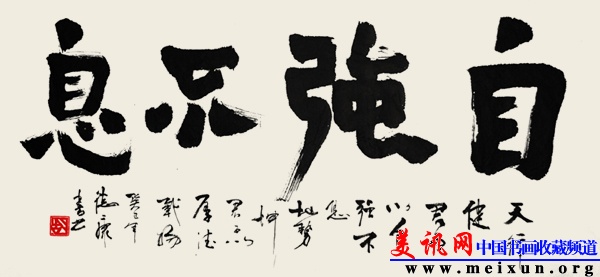 自強不息
天行
健
君子
以自
強不
息
地勢
坤
君子以
厚德
載物
癸巳年
書
美讯网 中国书画收藏频道
www.meixun.org